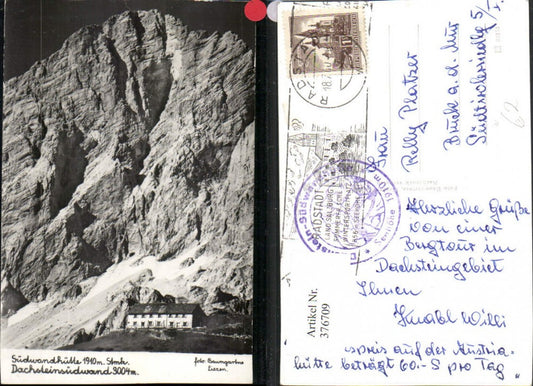 Südwandhütte 1910m. Stmk.
Dachsteinsüdwand 3004m.
foto Baumgartner
Liezen.
RADSTADT
LAND SALZBURG
Artikel Nr.
376709
Frau
Relly Platzer
Bruck a. d. Mur
Südtirolersiedlg 5/I
62
Herzliche Grüße
von einer
Bergtour im
Dachsteingebiet
Ihnen
Knabl Willi
spreis auf der Austria-
hütte beträgt 60.-S pro Tag